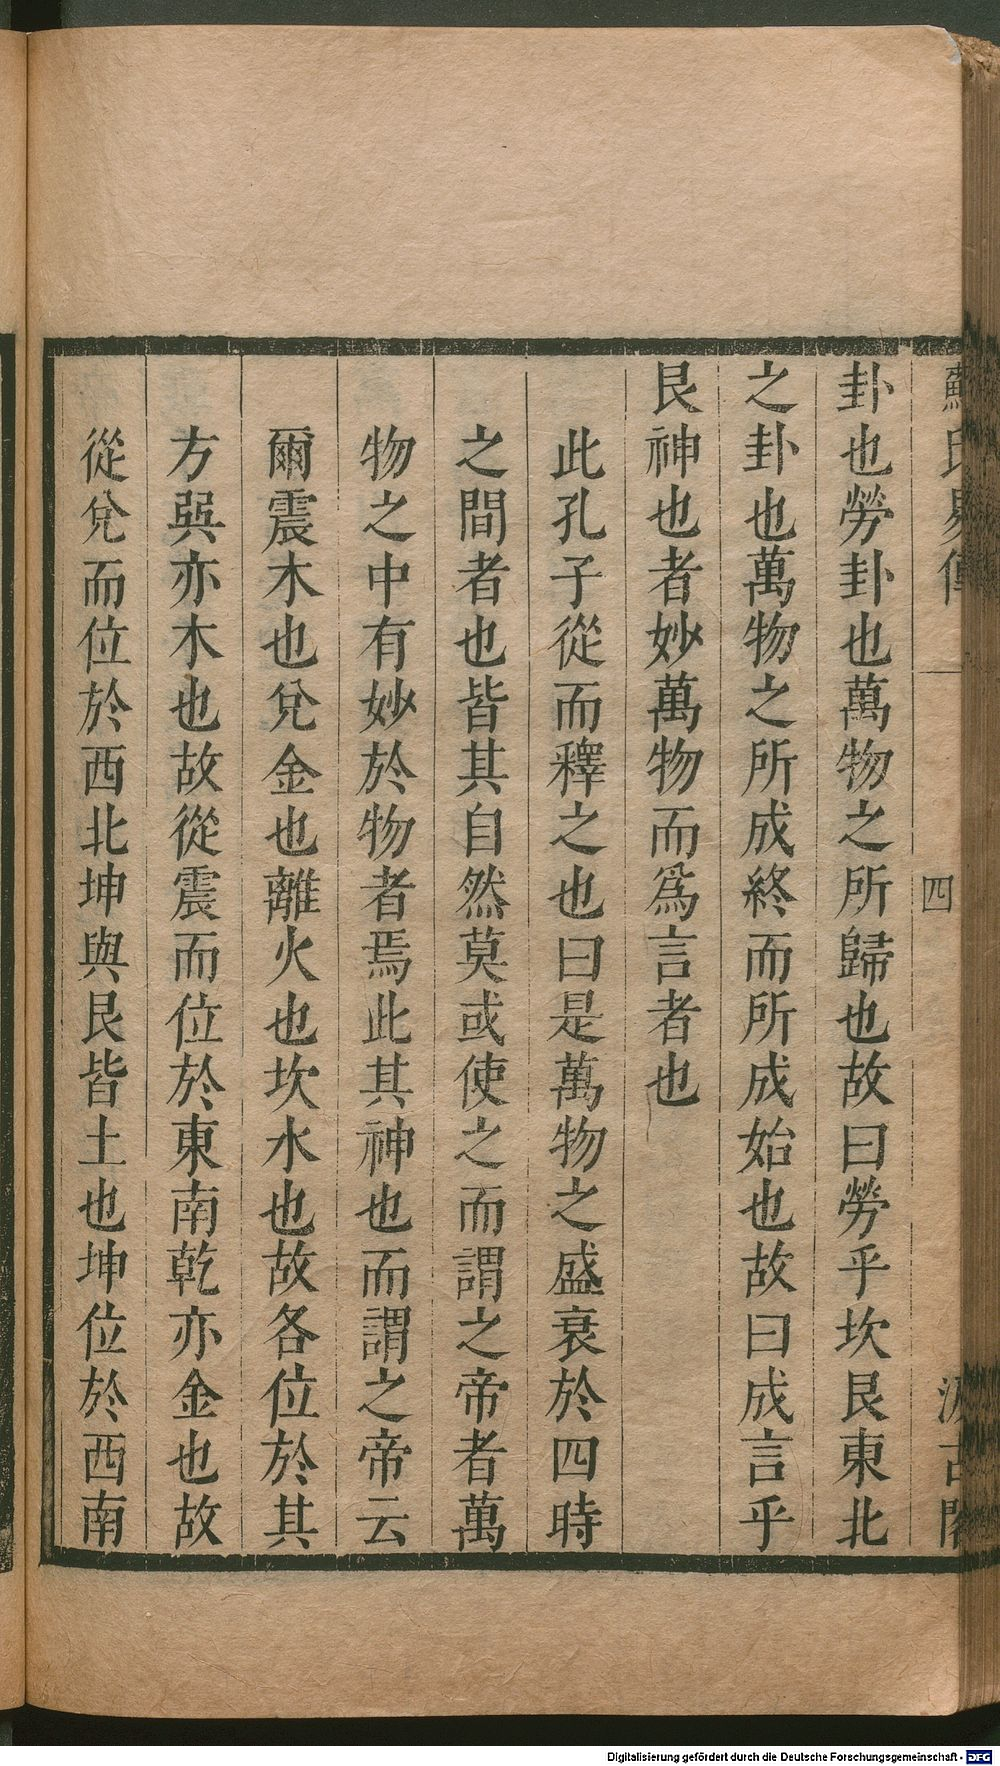 蘇氏易傳
四
汲古閣
卦也勞卦也萬物之所歸也故曰勞乎坎艮東北
之卦也萬物之所成終而所成始也故曰成言乎
艮神也者妙萬物而爲言者也
此孔子從而釋之也曰是萬物之盛衰於四時
之間者也皆其自然莫或使之而謂之帝者萬
物之中有妙於物者焉此其神也而謂之帝云
爾震木也兌金也離火也坎水也故各位於其
方巽亦木也故從震而位於東南乾亦金也故
從兌而位於西北坤與艮皆土也坤位於西南
Digitalisierung gefördert durch die Deutsche Forschungsgemeinschaft - DFG